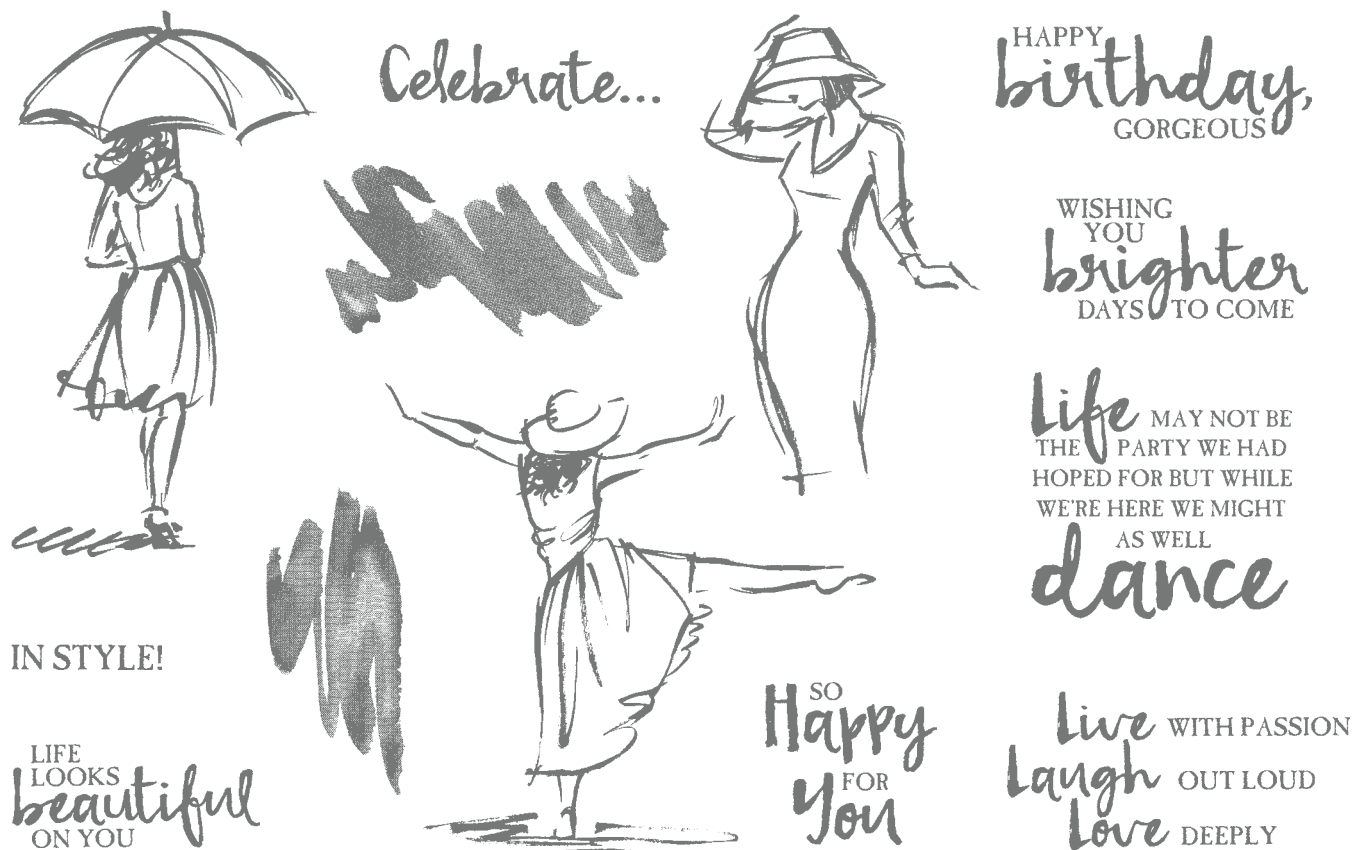 Celebrate...
HAPPY
birthday,
GORGEOUS
WISHING
YOU
brighter
DAYS TO COME
Life MAY NOT BE
THE PARTY WE HAD
HOPED FOR BUT WHILE
WE'RE HERE WE MIGHT
AS WELL
dance
IN STYLE!
LIFE
LOOKS
beautiful
ON YOU
SO
Happy
FOR
You
Live WITH PASSION
Laugh OUT LOUD
Love DEEPLY